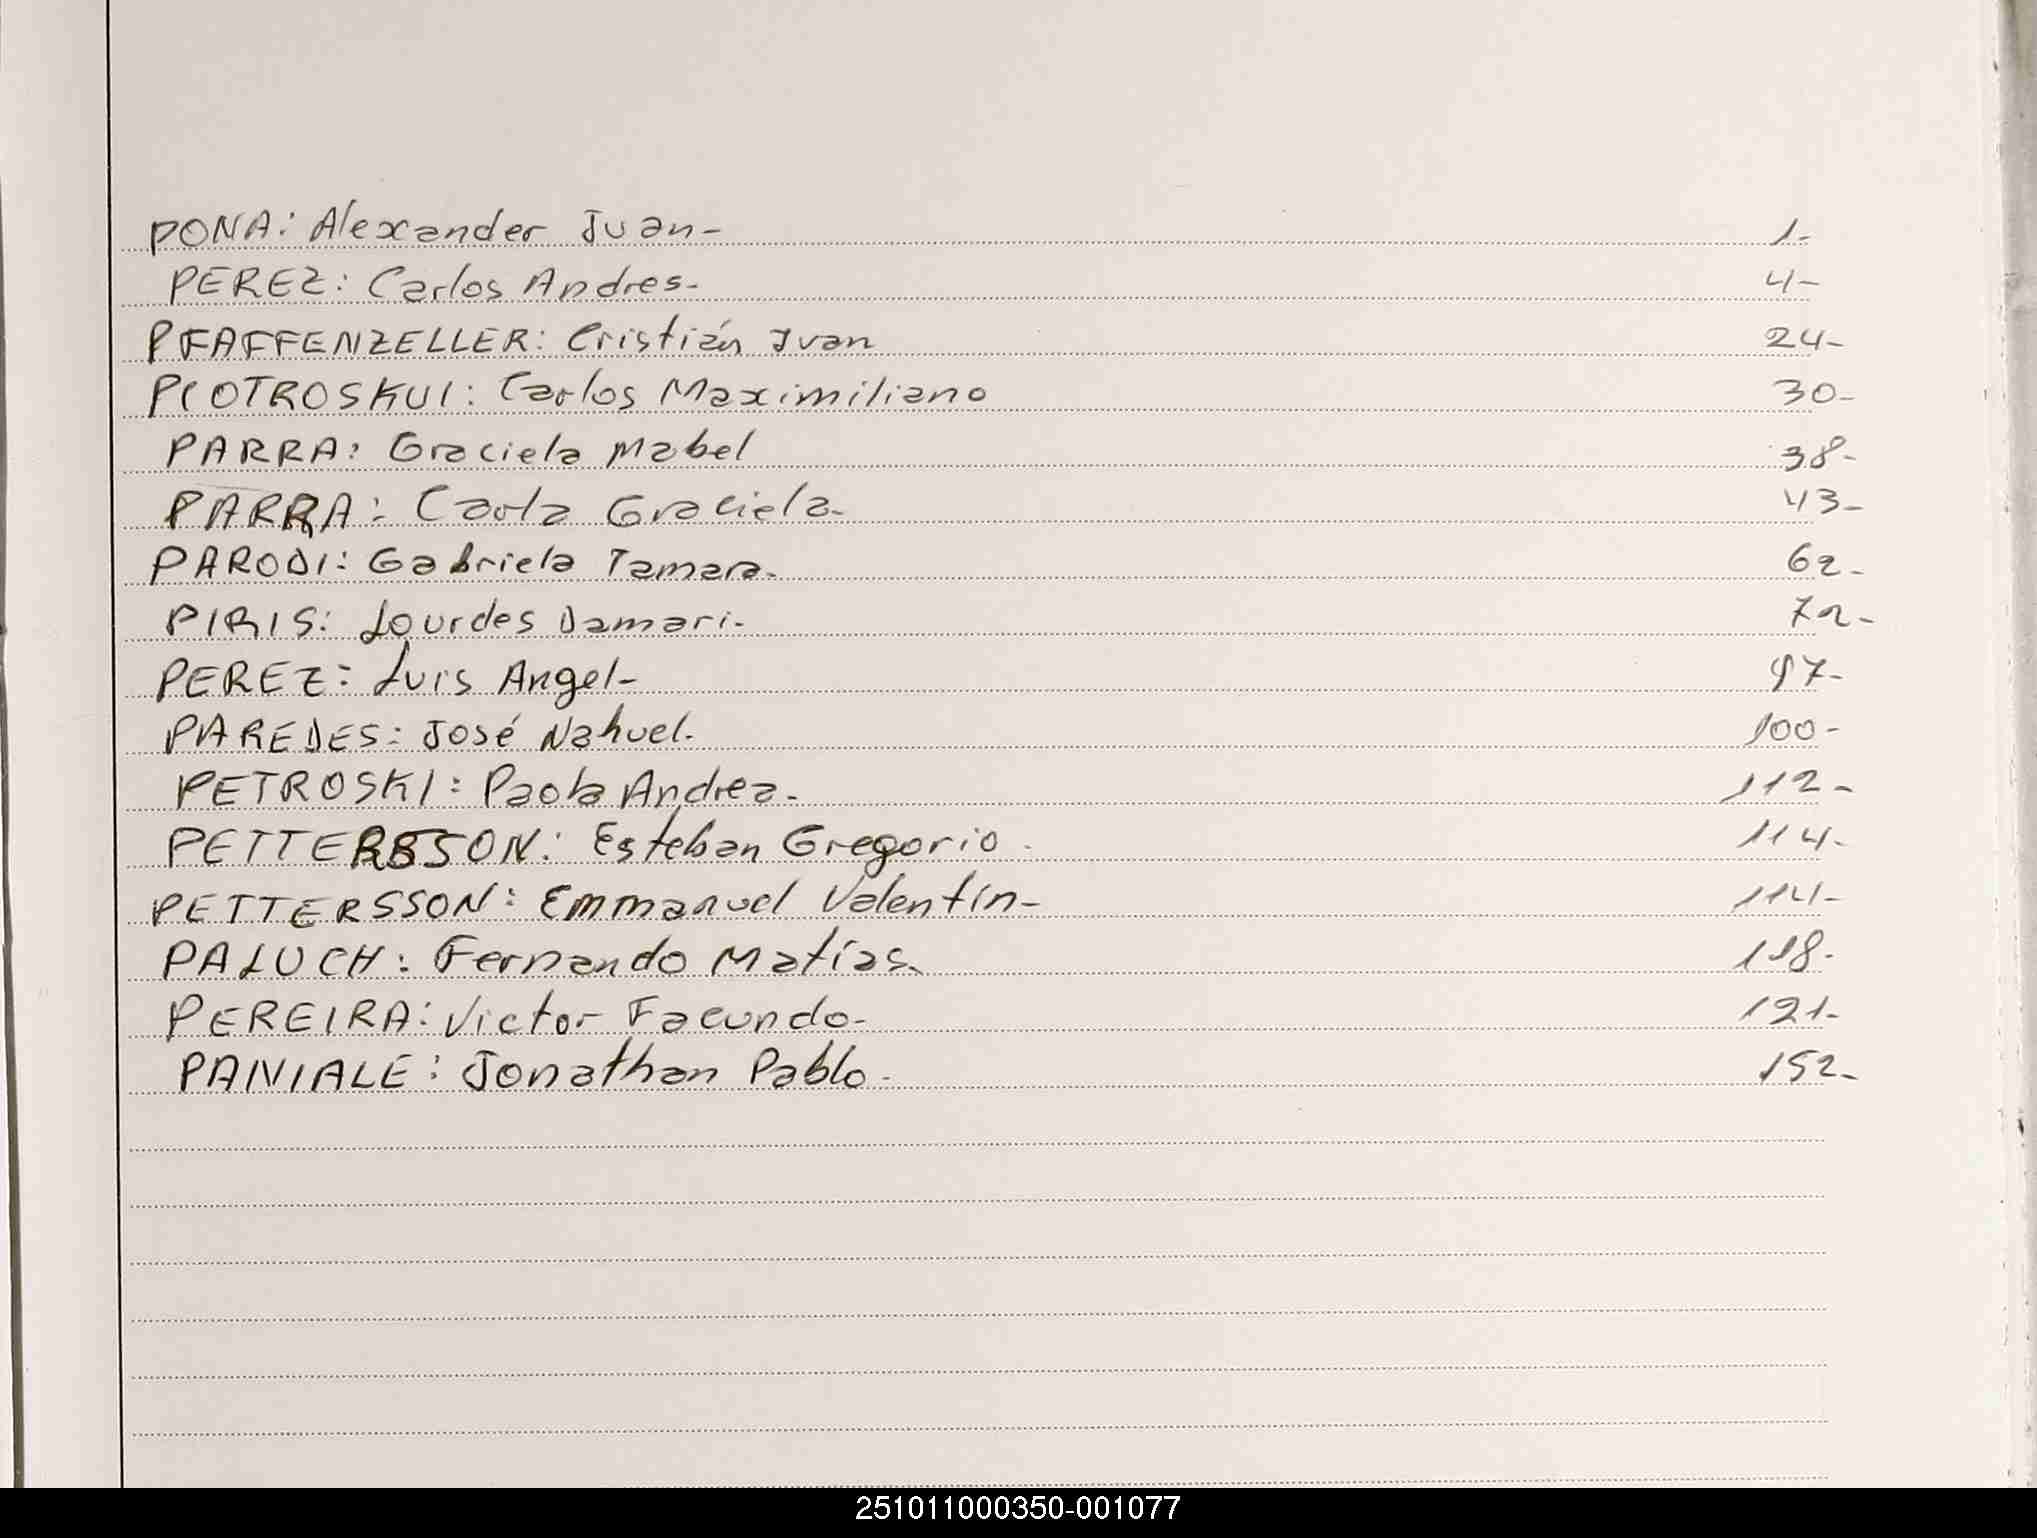 PONA: Alexander Juan- 1-
PEREZ: Carlos Andres- 4-
PFAFFENZELLER: Cristián Ivan 24-
PIOTROSKUI: Carlos Maximiliano 30-
PARRA: Graciela Mabel 38-
PARRA: Carla Graciela- 43-
PARODI: Gabriela Tamara- 62-
PIRIS: Lourdes Damari- 72-
PEREZ: Luis Angel- 97-
PAREDES: José Nahuel- 100-
PETROSKI: Paola Andrea- 112-
PETTERSSON: Esteban Gregorio- 114-
PETTERSSON: Emmanuel Valentín- 114-
PALUCH: Fernando Matías- 118-
PEREIRA: Victor Facundo- 121-
PANIALE: Jonathan Pablo- 152-
251011000350-001077